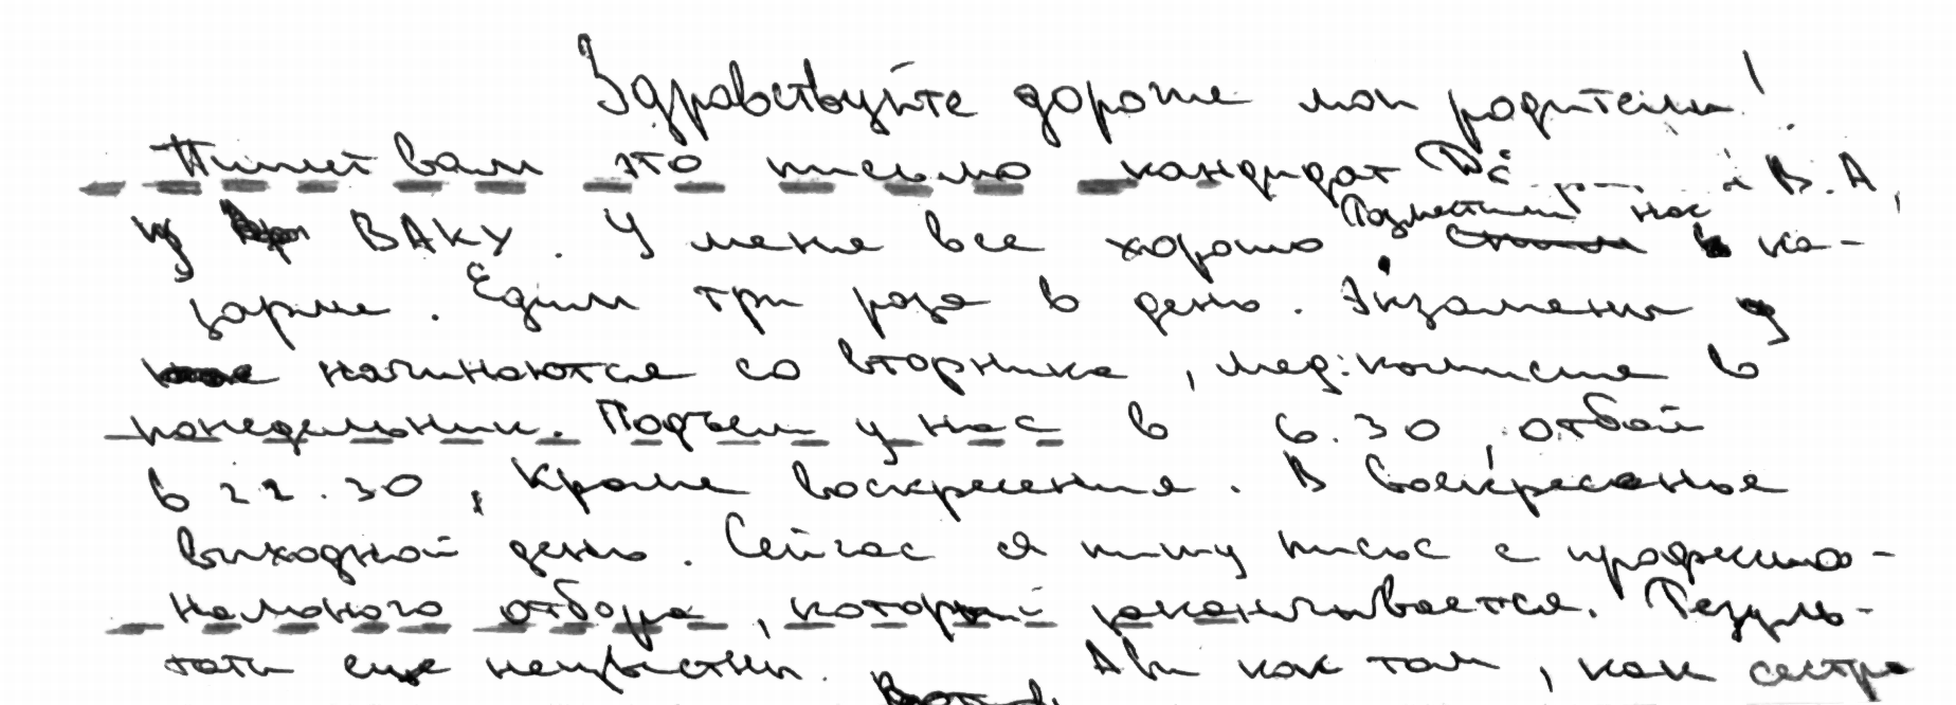 Здравствуйте дорогие мои родители!
Пишет вам это письмо кандидат В.А,
из ВАКУ. У меня все хорошо. Разместили нас в ка-
зарме. Едим три раза в день. Экзамены у
нас начинаются со вторника, мед.комиссия в
понедельник. Подъем у нас в 6.30, отбой
в 22.30, кроме воскресения. В воскресенье
выходной день. Сейчас я пишу письмо с професио-
нального отбора, который заканчивается. Резуль-
таты еще неизвестны. А вы как там, как сестра